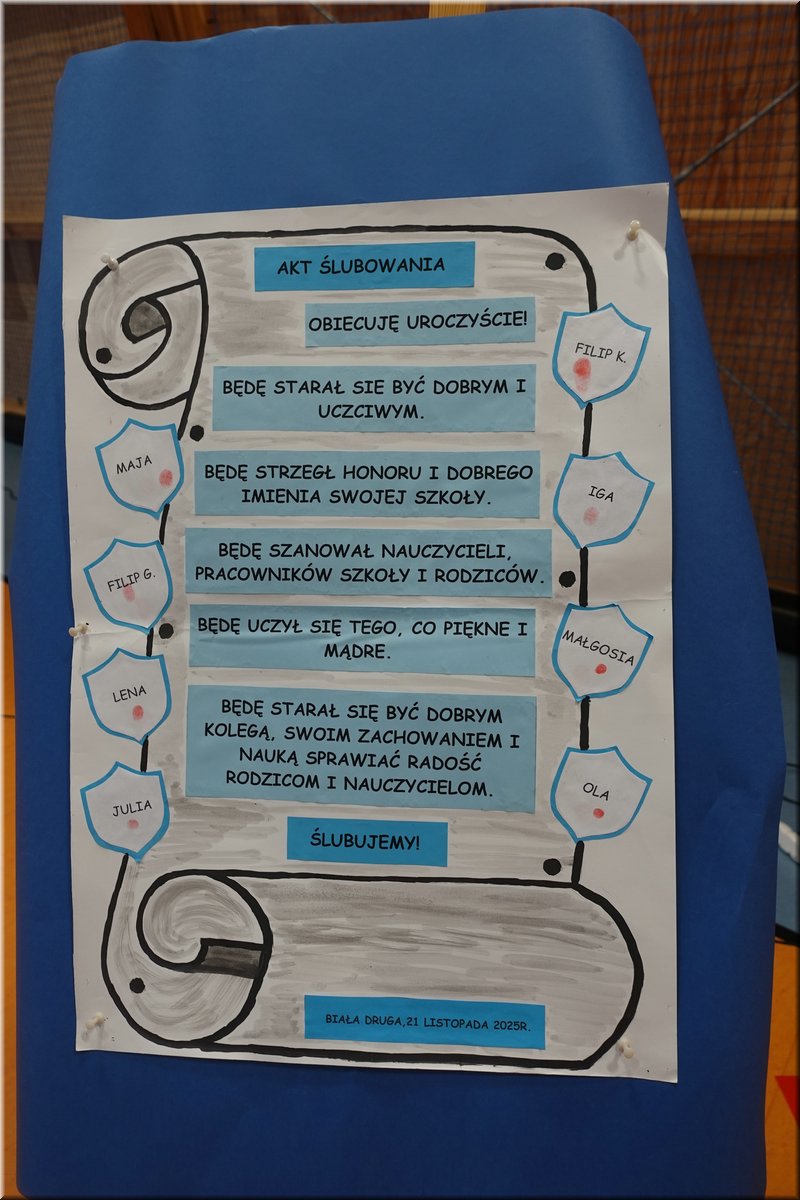 AKT ŚLUBOWANIA
OBIECUJĘ UROCZYŚCIE!
BĘDĘ STARAŁ SIE BYĆ DOBRYM I
UCZCIWYM.
BĘDĘ STRZEGŁ HONORU I DOBREGO
IMIENIA SWOJEJ SZKOŁY.
BĘDĘ SZANOWAŁ NAUCZYCIELI,
PRACOWNIKÓW SZKOŁY I RODZICÓW.
BĘDĘ UCZYŁ SIĘ TEGO, CO PIĘKNE I
MĄDRE.
BĘDĘ STARAŁ SIĘ BYĆ DOBRYM
KOLEGĄ, SWOIM ZACHOWANIEM I
NAUKĄ SPRAWIAĆ RADOŚĆ
RODZICOM I NAUCZYCIELOM.
ŚLUBUJEMY!
MAJA
FILIP G.
LENA
JULIA
FILIP K.
IGA
MAŁGOSIA
OLA
BIAŁA DRUGA,21 LISTOPADA 2025R.